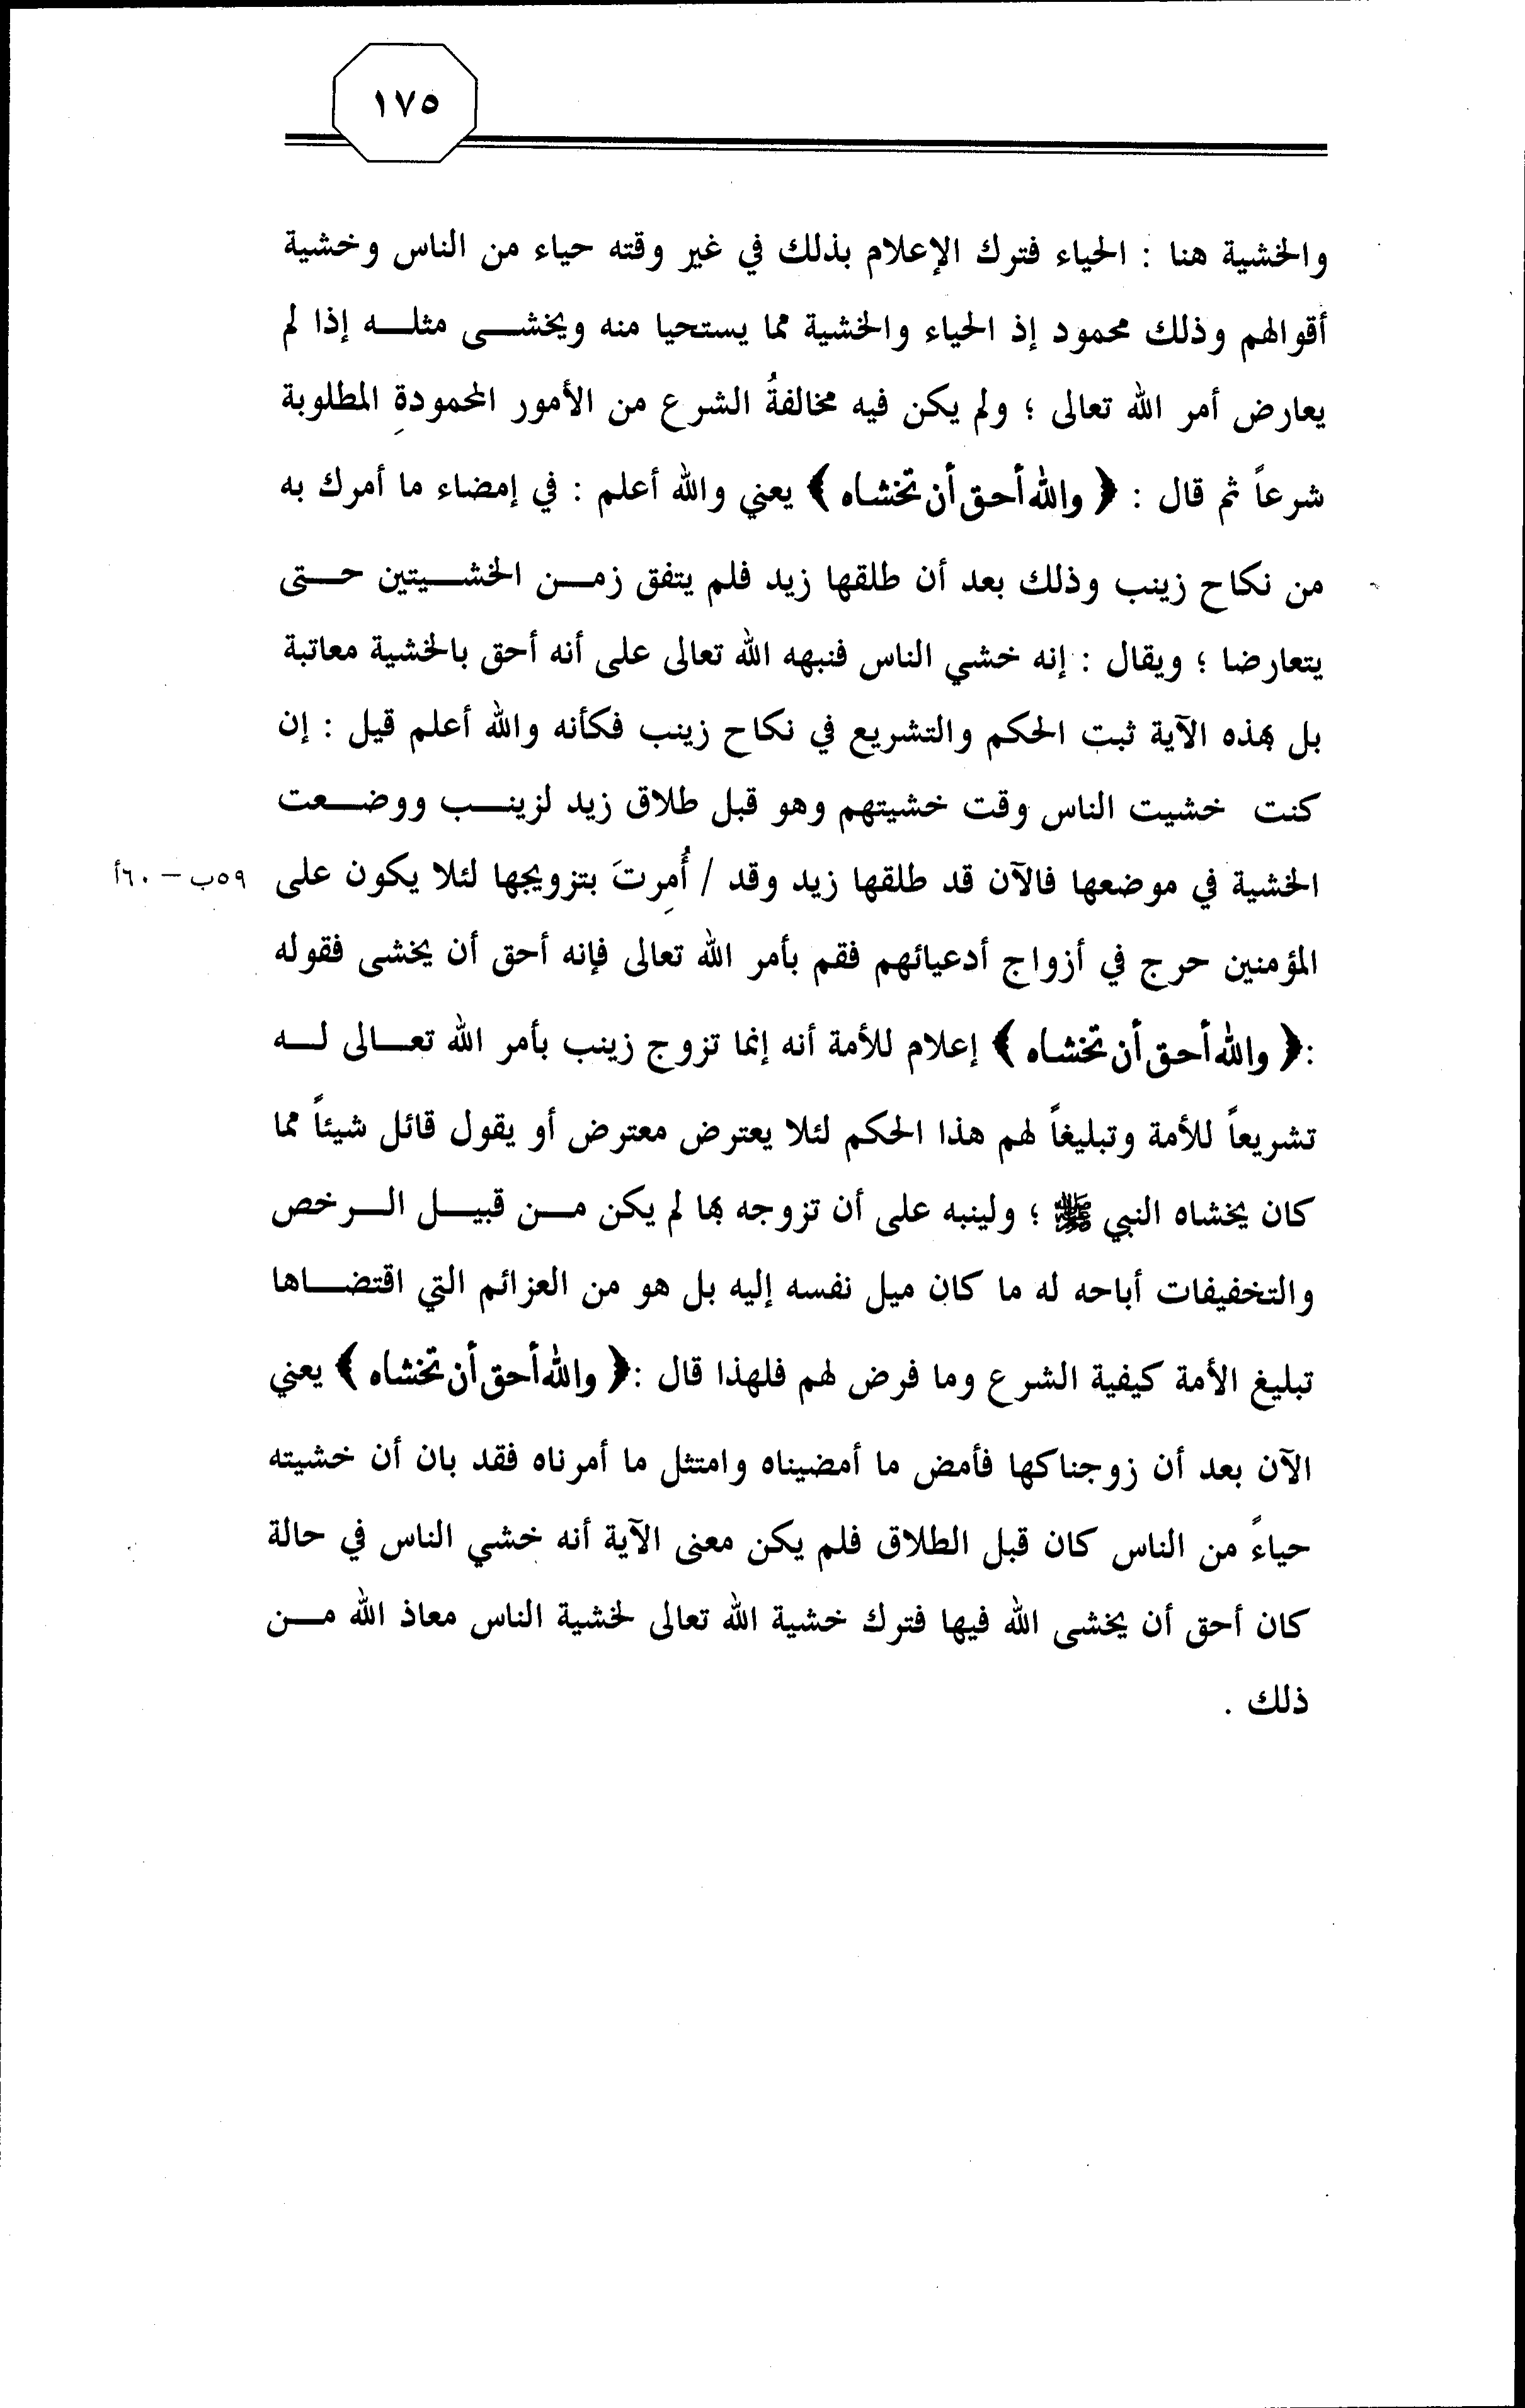 ١٧٥
والخشية هنا : الحياء فترك الإعلام بذلك في غير وقته حياء من الناس وخشية
أقوالهم وذلك محمود إذ الحياء والخشية مما يستحيا منه ويخشـــى مثلـــه إذا لم
يعارض أمر الله تعالى ؛ ولم يكن فيه مخالفةُ الشرع من الأمور المحمودةِ المطلوبة
شرعاً ثم قال : ﴿ والله أحق أن تخشاه ﴾ يعني والله أعلم : في إمضاء ما أمرك به
من نكاح زينب وذلك بعد أن طلقها زيد فلم يتفق زمـــن الخشـــيتين حـــتى
يتعارضا ؛ ويقال : إنه خشي الناس فنبهه الله تعالى على أنه أحق بالخشية معاتبة
بل بهذه الآية ثبت الحكم والتشريع في نكاح زينب فكأنه والله أعلم قيل : إن
كنت خشيت الناس وقت خشيتهم وهو قبل طلاق زيد لزينـــب ووضـــعت
الخشية في موضعها فالآن قد طلقها زيد وقد / أُمِرتَ بتزويجها لئلا يكون على ٥٩ب – ٦٠أ
المؤمنين حرج في أزواج أدعيائهم فقم بأمر الله تعالى فإنه أحق أن يخشى فقوله
:﴿ والله أحق أن تخشاه ﴾ إعلام للأمة أنه إنما تزوج زينب بأمر الله تعـــالى لـــه
تشريعاً للأمة وتبليغاً لهم هذا الحكم لئلا يعترض معترض أو يقول قائل شيئاً مما
كان يخشاه النبي ﷺ ؛ ولينبه على أن تزوجه بها لم يكن مـــن قبيـــل الـــرخص
والتخفيفات أباحه له ما كان ميل نفسه إليه بل هو من العزائم التي اقتضـــاها
تبليغ الأمة كيفية الشرع وما فرض لهم فلهذا قال :﴿ والله أحق أن تخشاه ﴾ يعني
الآن بعد أن زوجناكها فأمض ما أمضيناه وامتثل ما أمرناه فقد بان أن خشيته
حياءً من الناس كان قبل الطلاق فلم يكن معنى الآية أنه خشي الناس في حالة
كان أحق أن يخشى الله فيها فترك خشية الله تعالى لخشية الناس معاذ الله مـــن
ذلك .